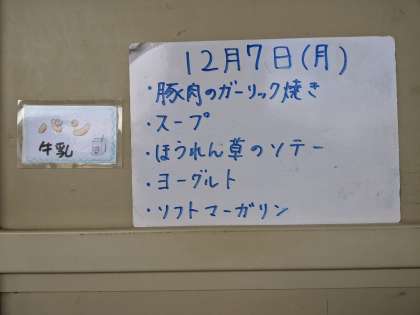 パン
牛乳
12月7日(月)
・豚肉のガーリック焼き
・スープ
・ほうれん草のソテー
・ヨーグルト
・ソフトマーガリン